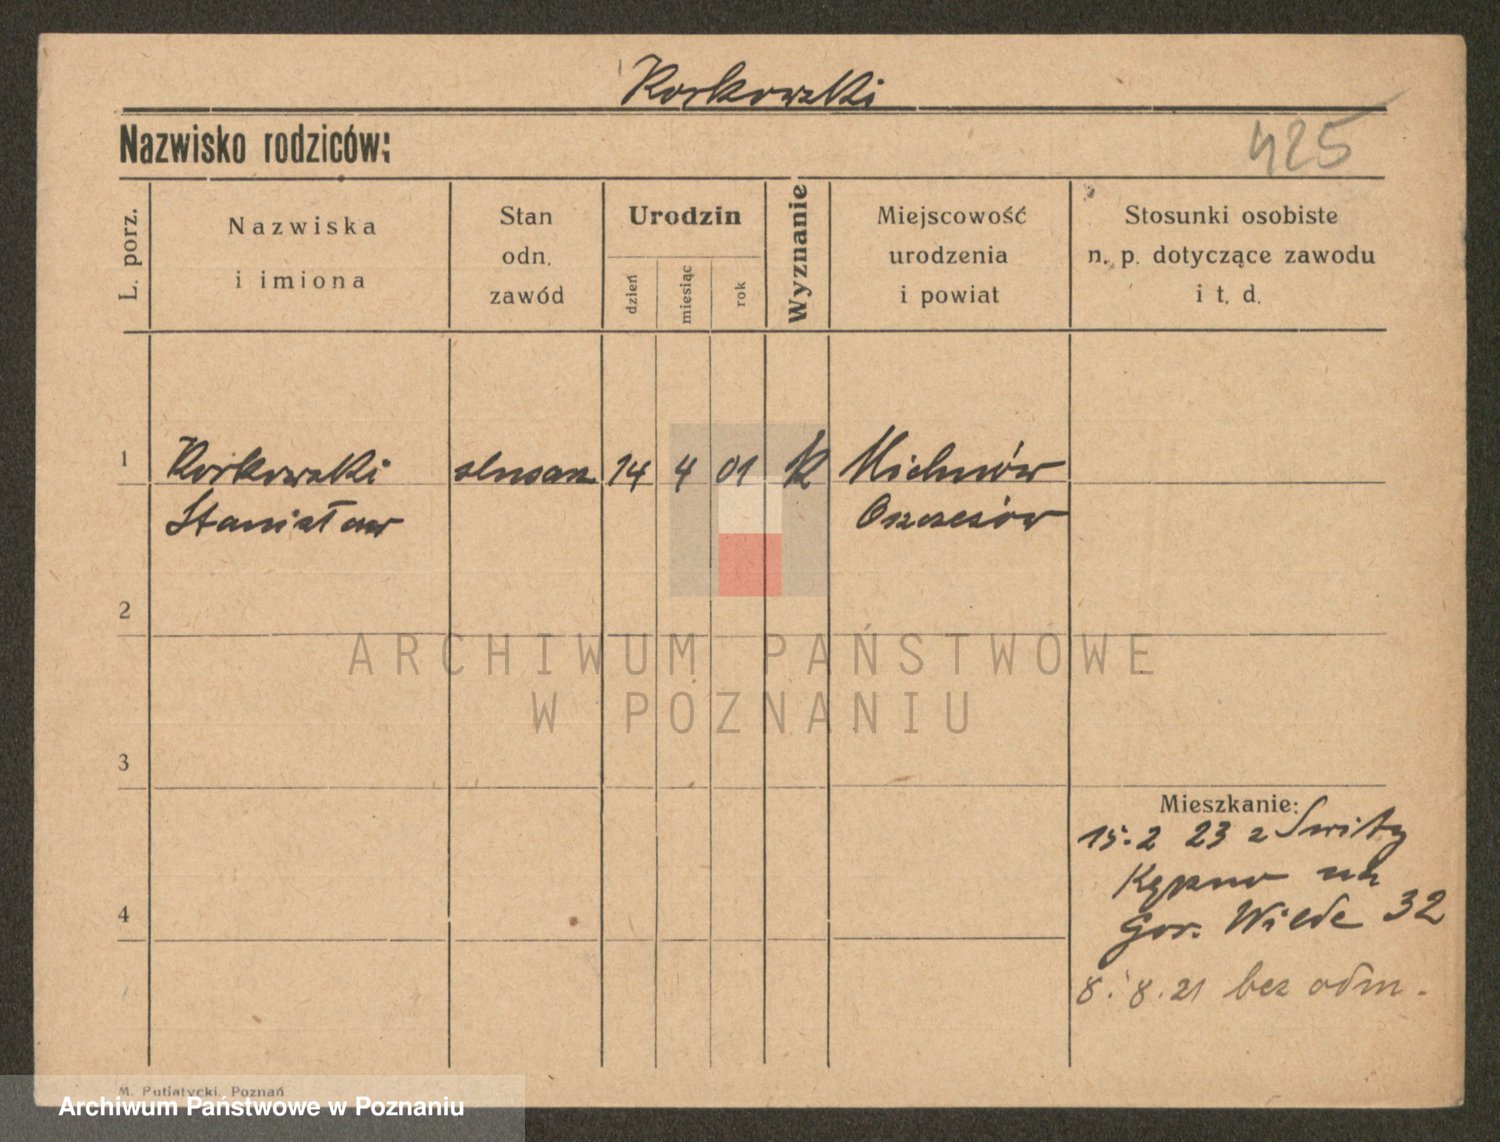 Korkowski
Nazwisko rodziców:
425
L. porz.
Nazwiska
i imiona
Stan
odn.
zawód
Urodzin
dzień
miesiąc
rok
Wyznanie
Miejscowość
urodzenia
i powiat
Stosunki osobiste
n. p. dotyczące zawodu
i t. d.
1
Korkowski
Stanisław
14
4
01
k
2
3
4
Mieszkanie:
15.2 23 z
Kępno na
Gor. Wilde 32
8.8.21 bez odm.
ARCHIWUM PAŃSTWOWE
W POZNANIU
M. Putiatycki, Poznań
Archiwum Państwowe w Poznaniu